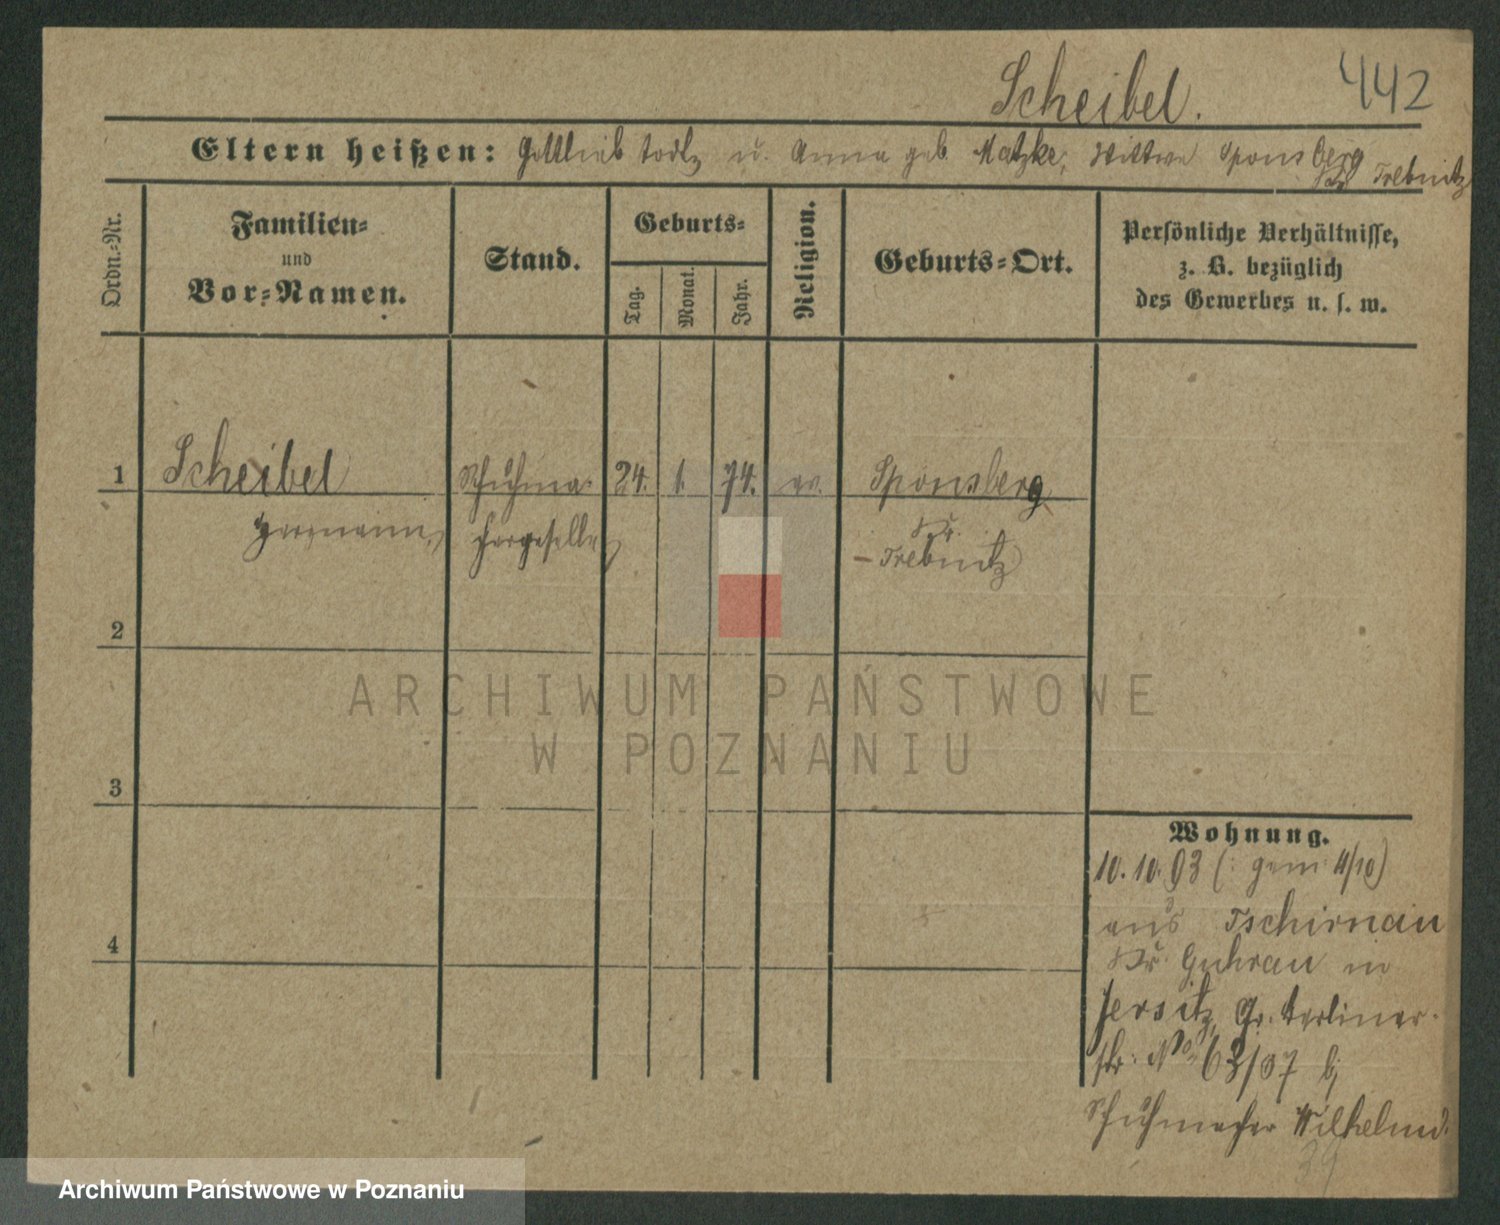 Scheibel. 442
Eltern heißen: Gottlieb todt, u. Anna geb. Matzke, Wittwe Sponsberg
Kr. Trebnitz
Ordn.=Nr.
Familien=
und
Vor=Namen.
Stand.
Geburts=
Tag.
Monat.
Jahr.
Religion.
Geburts=Ort.
Persönliche Verhältnisse,
z. B. bezüglich
des Gewerbes u. s. w.
1 Scheibel Schuhma= 24. 1. 74. ev. Sponsberg
Herrmann, chergeselle Kr.
Trebnitz
2
3
4
Wohnung.
10.10.93 (: gem 4/10)
aus Tschirnau
Kr. Guhrau in
Jersitz, Gr. Berliner=
str. No. 63/07 b,
Schuhmacher Wilhelm
39
ARCHIWUM PAŃSTWOWE
W POZNANIU
Archiwum Państwowe w Poznaniu